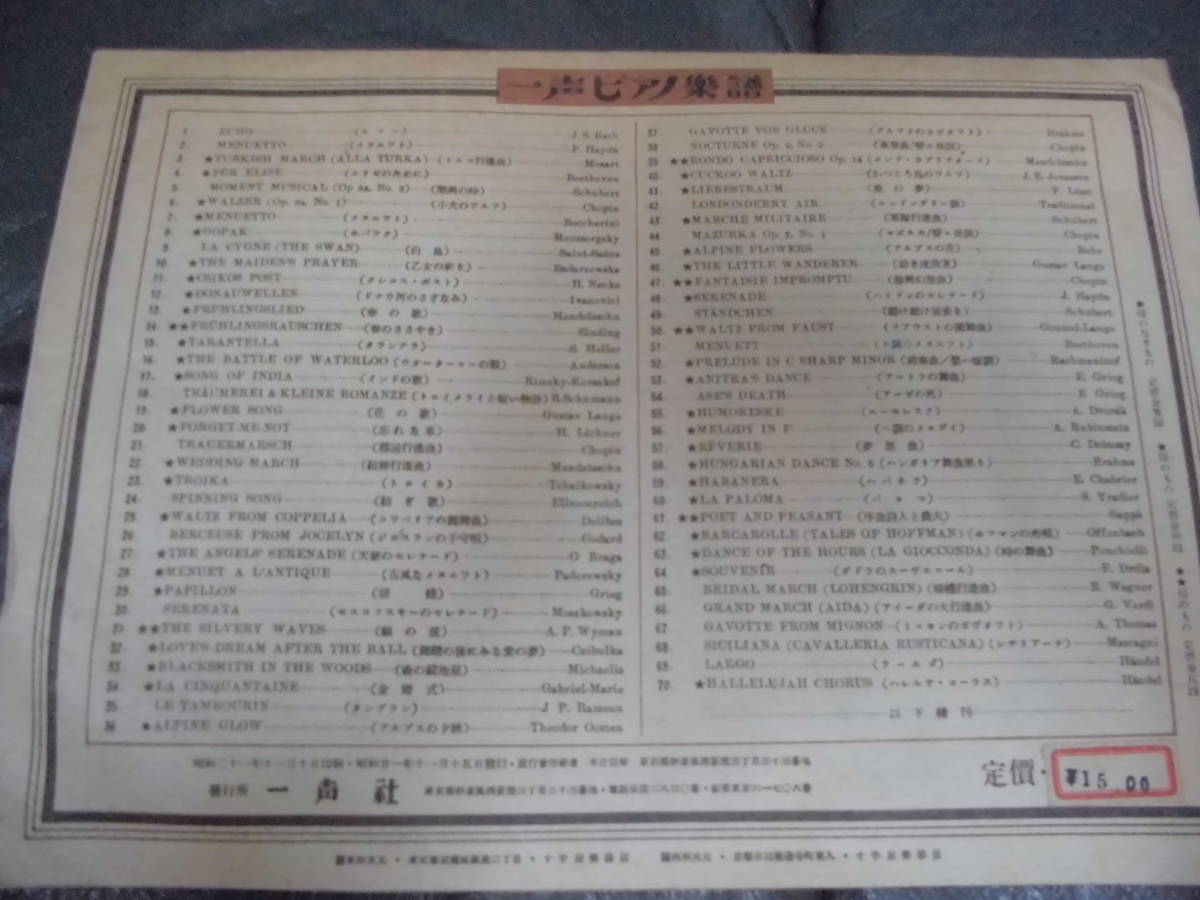 一声ピアノ樂譜
1. ECHO (エコー) J. S. Bach
2. MENUETTO (メヌエット) P. Haydn
3. ★TURKISH MARCH (ALLA TURKA) (トルコ行進曲) Mozart
4. ★FÜR ELISE (エリゼのために) Beethoven
5. MOMENT MUSICAL (Op 94, No. 3) (樂興の時) Schubert
6. ★WALZER (Op. 64, No. 1) (小犬のワルツ) Chopin
7. ★MENUETTO (メヌエット) Boccherini
8. ★GOPAK (ホパック) Moussorgsky
9. LA CYGNE (THE SWAN) (白鳥) Saint-Saëns
10. ★THE MAIDEN'S PRAYER (乙女の祈り) Badarzewska
11. ★CSIKOS POST (クシコス・ポスト) H. Necke
12. ★DONAUWELLEN (ドナウ河のさざなみ) Ivanovici
13. ★FRÜHLINGSLIED (春の歌) Mendelssohn
14. ★★FRÜHLINGSRAUSCHEN (春のささやき) Sinding
15. ★TARANTELLA (タランテラ) S. Heller
16. ★THE BATTLE OF WATERLOO (ウオーターローの戰) Anderson
17. ★SONG OF INDIA (インドの歌) Rimsky-Korsakof
18. TRÄUMEREI & KLEINE ROMANZE (トロイメライと短い物語) R. Schumann
19. ★FLOWER SONG (花の歌) Gustav Lange
20. ★FORGET-ME-NOT (忘れな草) H. Lichner
21. TRAUERMARSCH (葬送行進曲) Chopin
22. ★WEDDING MARCH (結婚行進曲) Mendelssohn
23. ★TROIKA (トロイカ) Tchaikowsky
24. SPINNING SONG (紡ぎ歌) Ellmenreich
25. ★WALTZ FROM COPPELIA (コツペリアの圓舞曲) Delibes
26. BERCEUSE FROM JOCELYN (ジョスランの子守唄) Godard
27. ★THE ANGELS' SERENADE (天使のセレナード) G Braga
28. ★MENUET A L'ANTIQUE (古風なメヌエット) Paderewsky
29. ★PAPILLON (胡蝶) Grieg
30. SERENATA (モスコフスキーのセレナード) Moszkowsky
31. ★★THE SILVERY WAVES (銀の波) A. P. Wyman
32. ★LOVE'S DREAM AFTER THE BALL (舞踏の後にみる愛の夢) Czibulka
33. ★BLACKSMITH IN THE WOODS (森の鍛冶屋) Michaelis
34. ★LA CINQUANTAINE (金婚式) Gabriel-Marie
35. LE TAMBOURIN (タンブラン) J P. Rameau
36. ★ALPINE GLOW (アルプスの夕映) Theodor Oesten
37. GAVOTTE VON GLUCK (グルックのガヴオット) Brahms
38. NOCTURNE Op. 9, No. 2 Chopin
39. ★★RONDO CAPRICCIOSO Op. 14 (ロンド・カプリチオーソ) Mendelssohn
40. ★CUCKOO WALTZ (かつこう鳥のワルツ) J. E. Jonasson
41. ★LIEBESTRAUM (愛の夢) F. Liszt
42. LONDONDERRY AIR (ロンドンデリー調) Traditional
43. ★MARCHE MILITAIRE (軍隊行進曲) Schubert
44. MAZURKA Op. 7, No. 1 Chopin
45. ★ALPINE FLOWERS (アルプスの花) Bohr
46. ★THE LITTLE WANDERER (幼き流浪者) Gustav Lange
47. ★★FANTAISIE IMPROMPTU (幽興幻想曲) Chopin
48. ★SERENADE (ハイドンのセレナード) J. Haydn
49. STÄNDCHEN Schubert
50. ★★WALTZ FROM FAUST (フアウストの圓舞曲) Gounod-Lange
51. MENUETT (ト調のメヌエット) Beethoven
52. ★PRELUDE IN C SHARP MINOR Rachmaninof
53. ★ANITRA'S DANCE (アニトラの舞曲) E. Grieg
54. ASE'S DEATH (アーゼの死) E Grieg
55. ★HUMORISKE (ユーモレスク) A. Dvorák
56. ★MELODY IN F (ヘ調のメロデイ) A. Rubinstein
57. ★RÊVERIE (夢想曲) C. Debussy
58. ★HUNGARIAN DANCE No. 5 (ハンガリア舞曲第5) Brahms
59. ★HABANERA (ハバネラ) E. Chabrier
60. ★LA PALOMA (パロマ) S. Yradier
61. ★★POET AND PEASANT (序曲詩人と農夫) Suppé
62. ★BARCAROLLE (TALES OF HOFFMAN) (ホフマンの舟唄) Offenbach
63. ★DANCE OF THE HOURS (LA GIOCCONDA) (時の舞曲) Ponchielli
64. ★SOUVENIR (ドドラのスーヴエニール) F. Drdla
65. BRIDAL MARCH (LOHENGRIN) (婚禮行進曲) R. Wagner
66. GRAND MARCH (AIDA) (アイーダの大行進曲) G. Verdi
67. GAVOTTE FROM MIGNON (ミニヨンのガヴオット) A. Thomas
68. SICILIANA (CAVALLERIA RUSTICANA) (シチリアーナ) Mascagni
69. LARGO (ラールゴ) Händel
70. ★HALLELUJAH CHORUS (ハレルヤ・コーラス) Händel
以下續刊
昭和二十一年十一月十日印刷・昭和廿一年十一月十五日發行
發行所 一声社
定價 ¥15.00